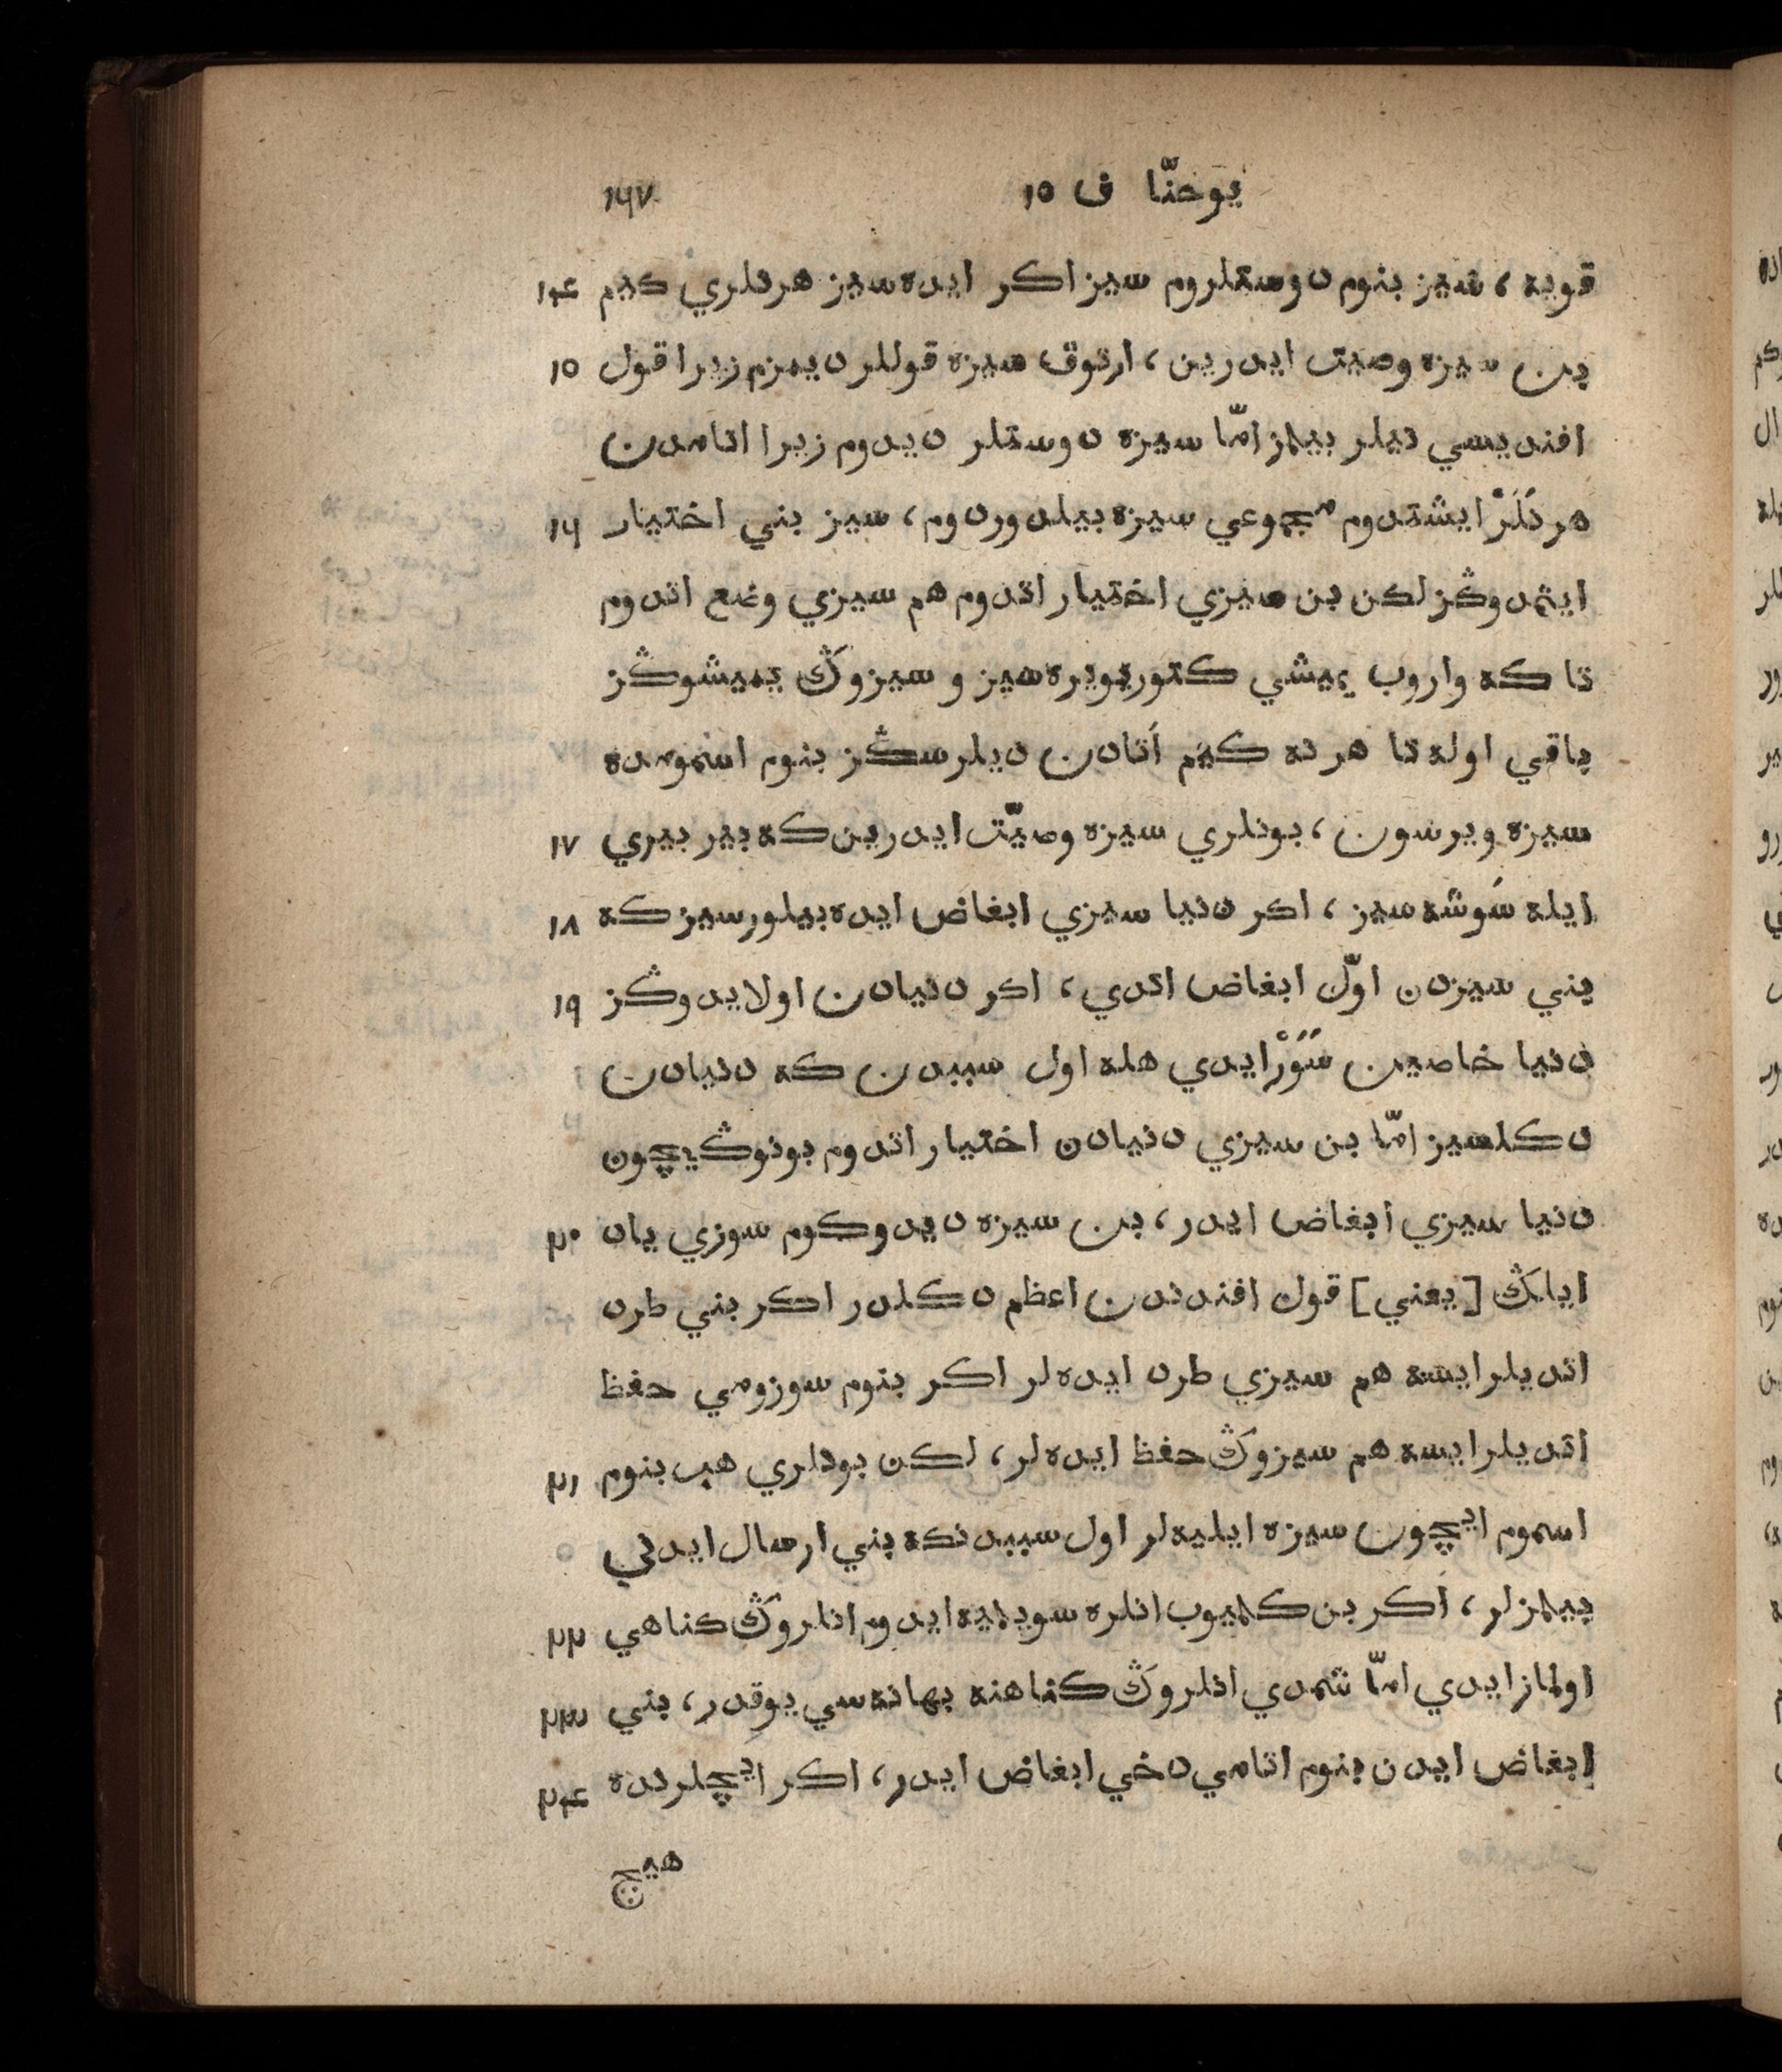 يوحنّا ف ١٥ ١٦٧
قويه ، سيز بنوم دوستلروم سيز اكر ايده سيز هر نلري كيم ١٤
بن سيزه وصيت ايدرين ، ارتوق سيزه قوللر ديمزم زيرا قول ١٥
افنديسي نيلر بيلمز امّا سيزه دوستلر ديدوم زيرا اتامدن
هر نَلَرْ ايشتدوم مجموعي سيزه بيلدوردوم ، سيز بني اختيار ١٦
ايتمدوڭز لكن بن سيزي اختيار اتدوم هم سيزي وضع اتدوم
تا كه واروب يميشي كتوريويره سيز و سيزوڭ يميشوڭز
باقي اوله تا هر نه كيم اَتادن ديلرسڭز بنوم اسمومده
سيزه ويرسون ، بونلري سيزه وصيّت ايدرين كه بير بيري ١٧
ايله سَوشه سيز ، اكر دنيا سيزي ابغاض ايده بيلورسيز كه ١٨
بني سيزدن اوّل ابغاض اتدي ، اكر دنيادن اولايدوڭز ١٩
دنيا خاصين سَوَرْ ايدي هله اول سببدن كه دنيادن
دكلسيز امّا بن سيزي دنيادن اختيار اتدوم بونوڭيچون
دنيا سيزي ابغاض ايدر ، بن سيزه ديدوكوم سوزي ياد ٢٠
ايلڭ [يعني] قول افندندن اعظم دكلدر اكر بني طرد
اتديلر ايسه هم سيزي طرد ايده لر اكر بنوم سوزومي حفظ
اتديلر ايسه هم سيزوڭ حفظ ايده لر ، لكن بونلري هب بنوم ٢١
اسموم ايچون سيزه ايليه لر اول سببدنكه بني ارسال ايدني
بيلمزلر ، اكر بن كلميوب انلره سويلميه ايدوم انلروڭ كناهي ٢٢
اولماز ايدي امّا شمدي انلروڭ كناهنه بهانه سي يوقدر ، بني ٢٣
ابغاض ايدن بنوم اتامي دخي ابغاض ايدر ، اكر ايچلرنده ٢٤
هيچ